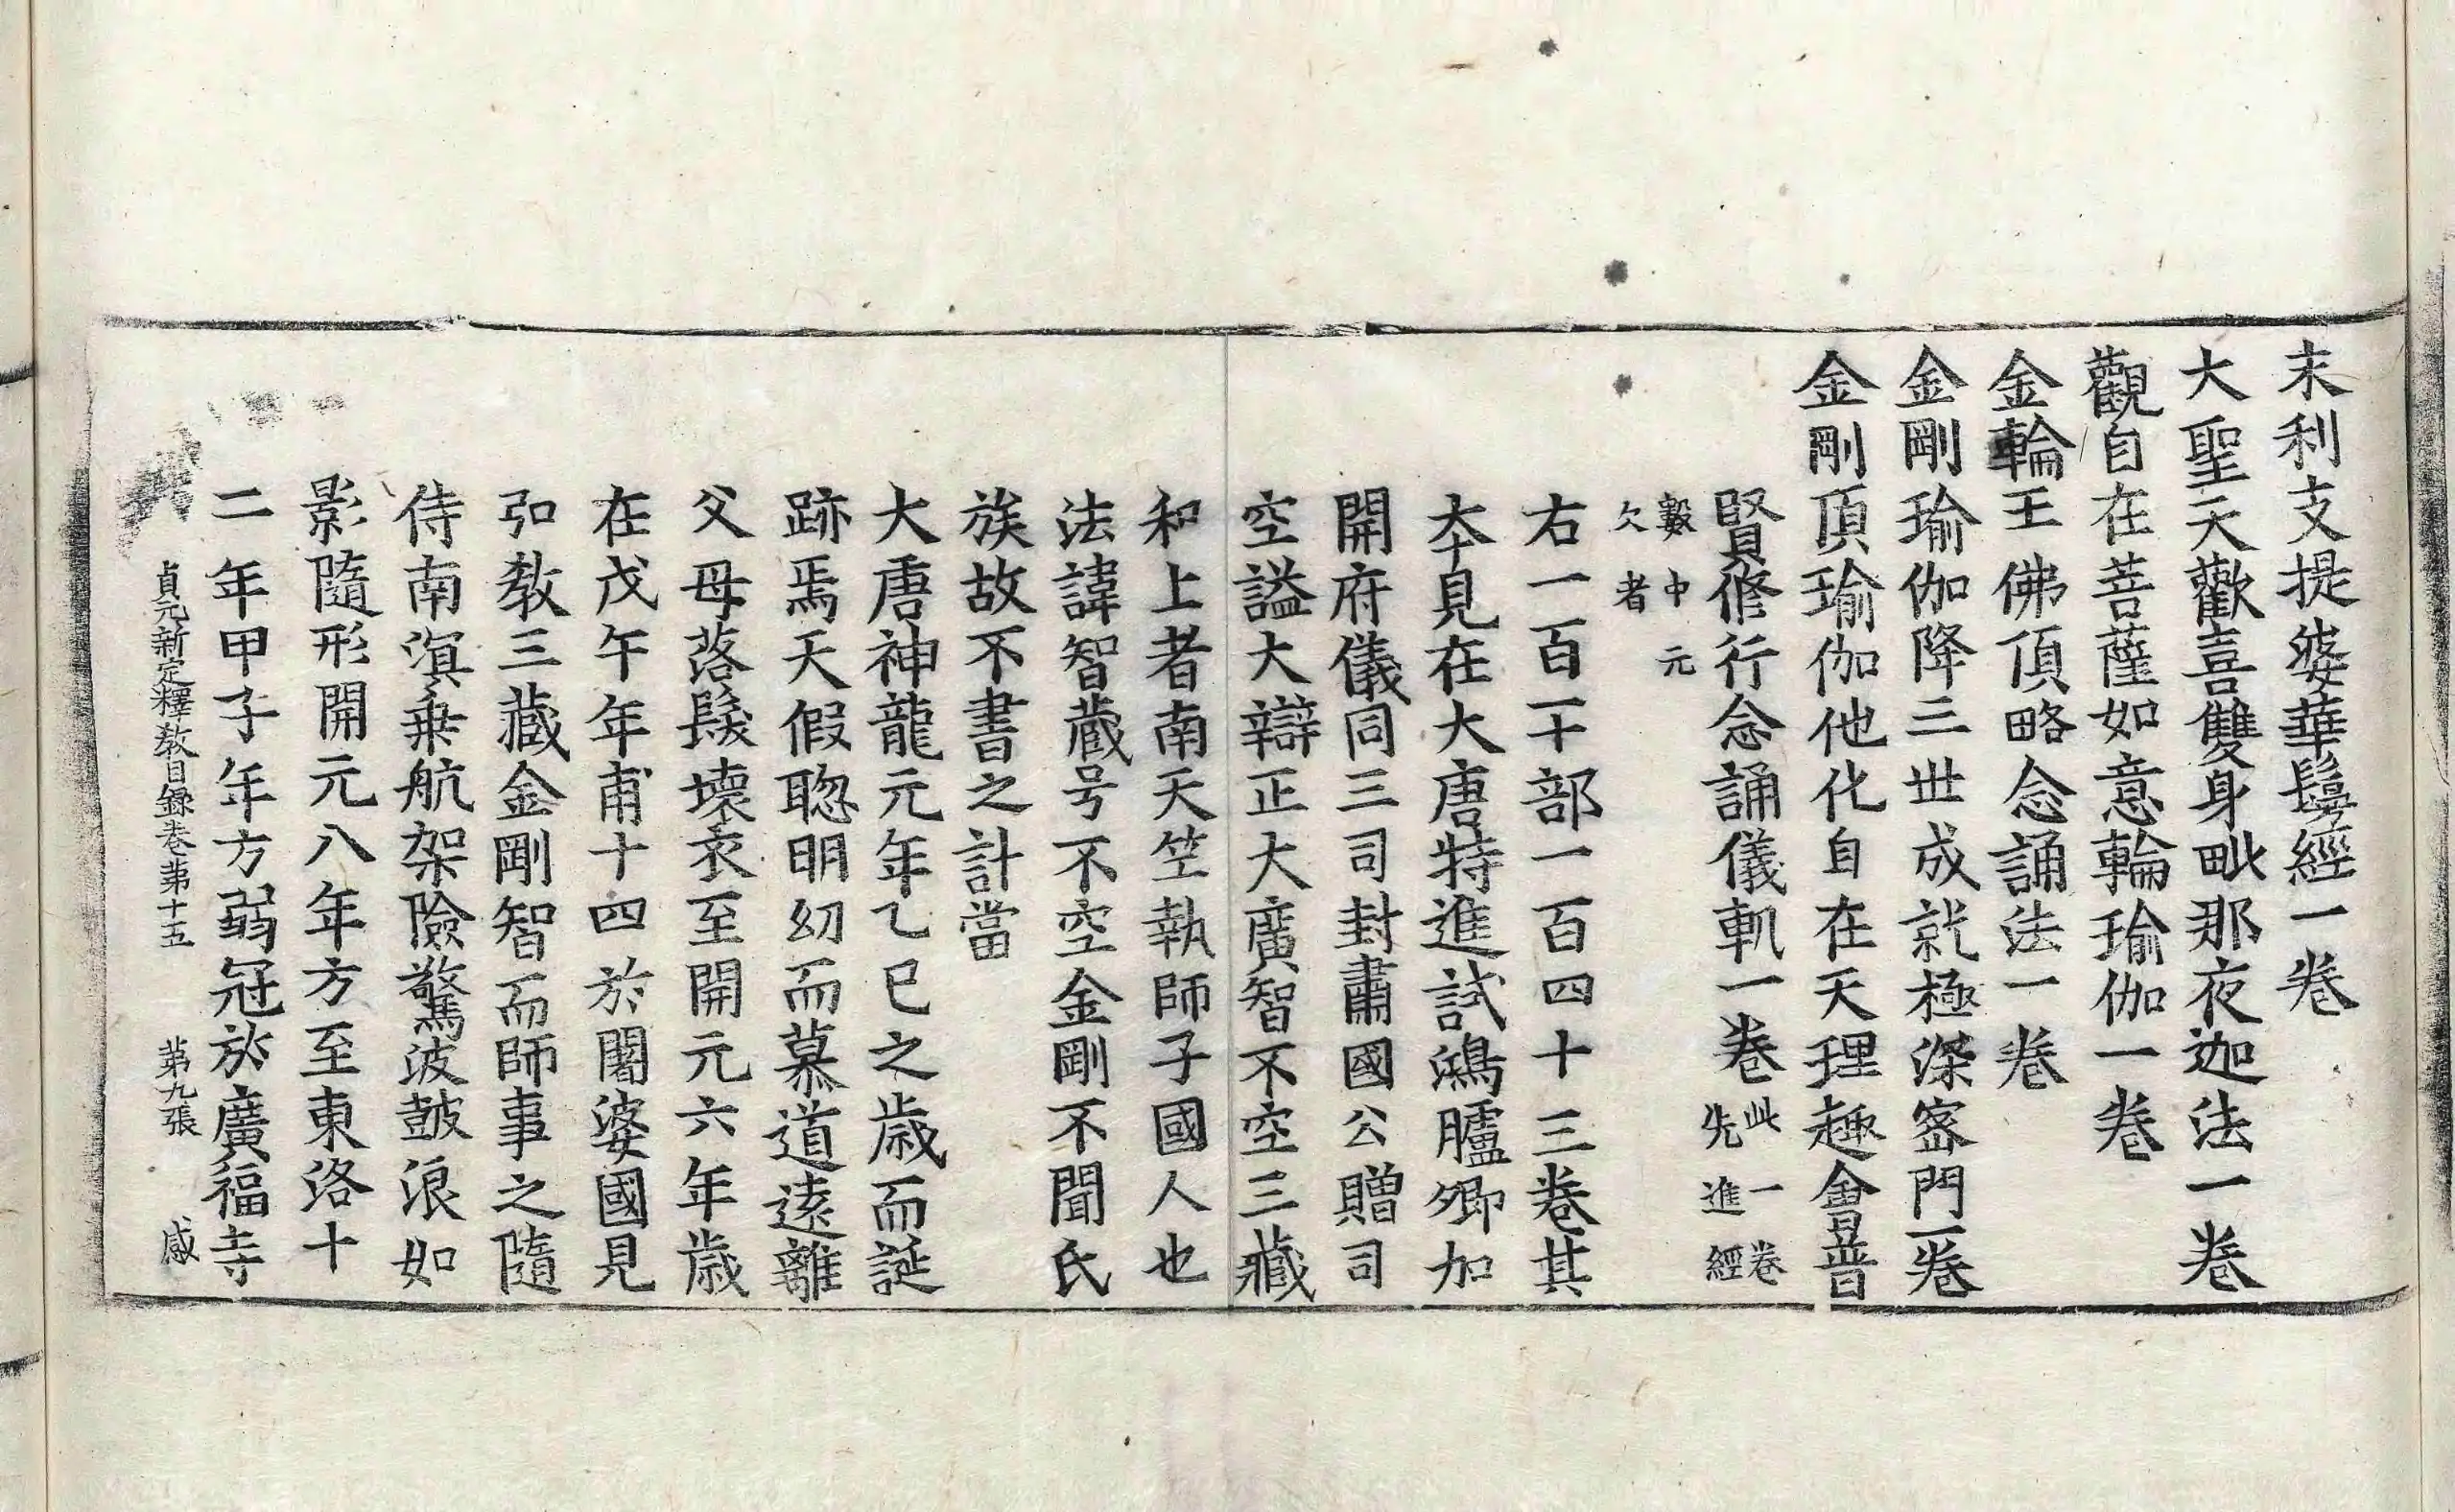 末利支提婆華鬘經一卷
大聖天歡喜雙身毗那夜迦法一卷
觀自在菩薩如意輪瑜伽一卷
金輪王佛頂略念誦法一卷
金剛瑜伽降三世成就極深密門一卷
金剛頂瑜伽他化自在天理趣會普
賢修行念誦儀軌一卷此一卷先進經
數中元欠者
右一百一十部一百四十三卷其
夲見在大唐特進試鴻臚卿加
開府儀同三司封肅國公贈司
空謚大辯正大廣智不空三藏
和上者南天笁執師子國人也
法諱智藏号不空金剛不聞氏
族故不書之計當
大唐神龍元年乙巳之歲而誕
跡焉天假聦明幼而慕道遠離
父母落髮壞衣至開元六年歲
在戊午年甫十四於闍婆國見
弘教三藏金剛智而師事之隨
侍南溟乗航架險驚波皷浪如
影隨形開元八年方至東洛十
二年甲子年方弱冠於廣福寺
貞元新定釋教目錄卷苐十五 苐九張 感